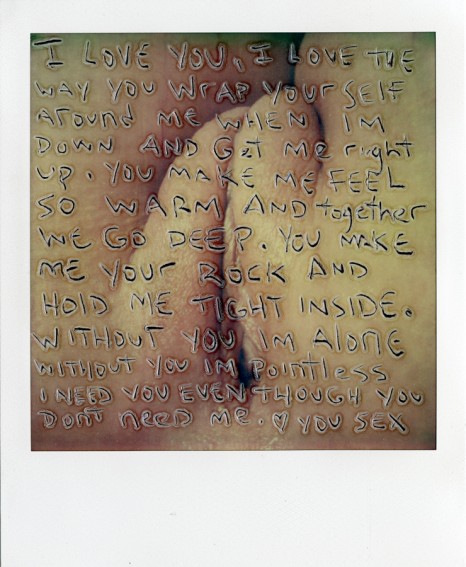 I LOVE YOU, I LOVE THE
WAY YOU WrAP YOUr SELF
Around ME WHEN IM
DOWN AND Get me right
UP. YOU MAKE ME FEEL
SO WARM AND together
WE GO DEEP. YOU MAKE
ME YOUr ROCK AND
HOLD ME TIGHT INSIDE.
WITHOUT YOU IM AlONE
WITHOUT YOU IM POintless
I NEED YOU EVEN THOUGH YOU
DONT NEED ME. ♡ YOU SEX